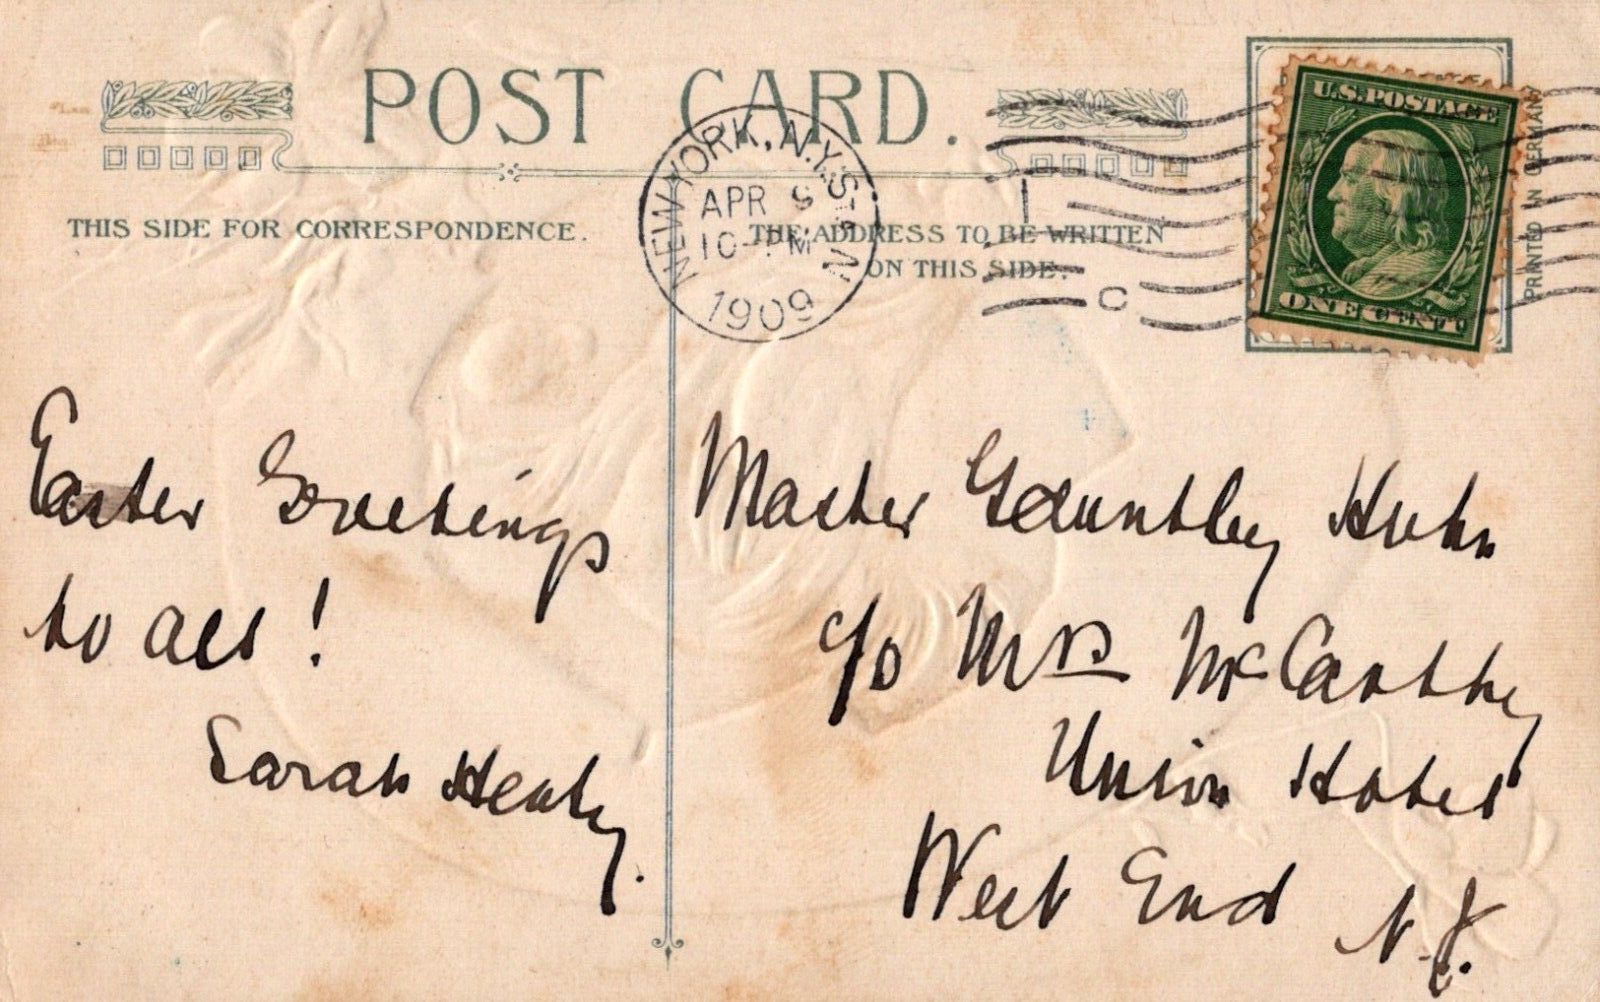 POST CARD.
THIS SIDE FOR CORRESPONDENCE.
THE ADDRESS TO BE WRITTEN
ON THIS SIDE.
NEW YORK, N.Y. STA
APR 9
10-PM
1909
N
C
U.S. POSTAGE
ONE CENT
PRINTED IN GERMANY
Easter Greetings
to all!
Sarah Healy.
Master Huhn
c/o Mrs McCarthy
Union Hotel
West End
N.J.